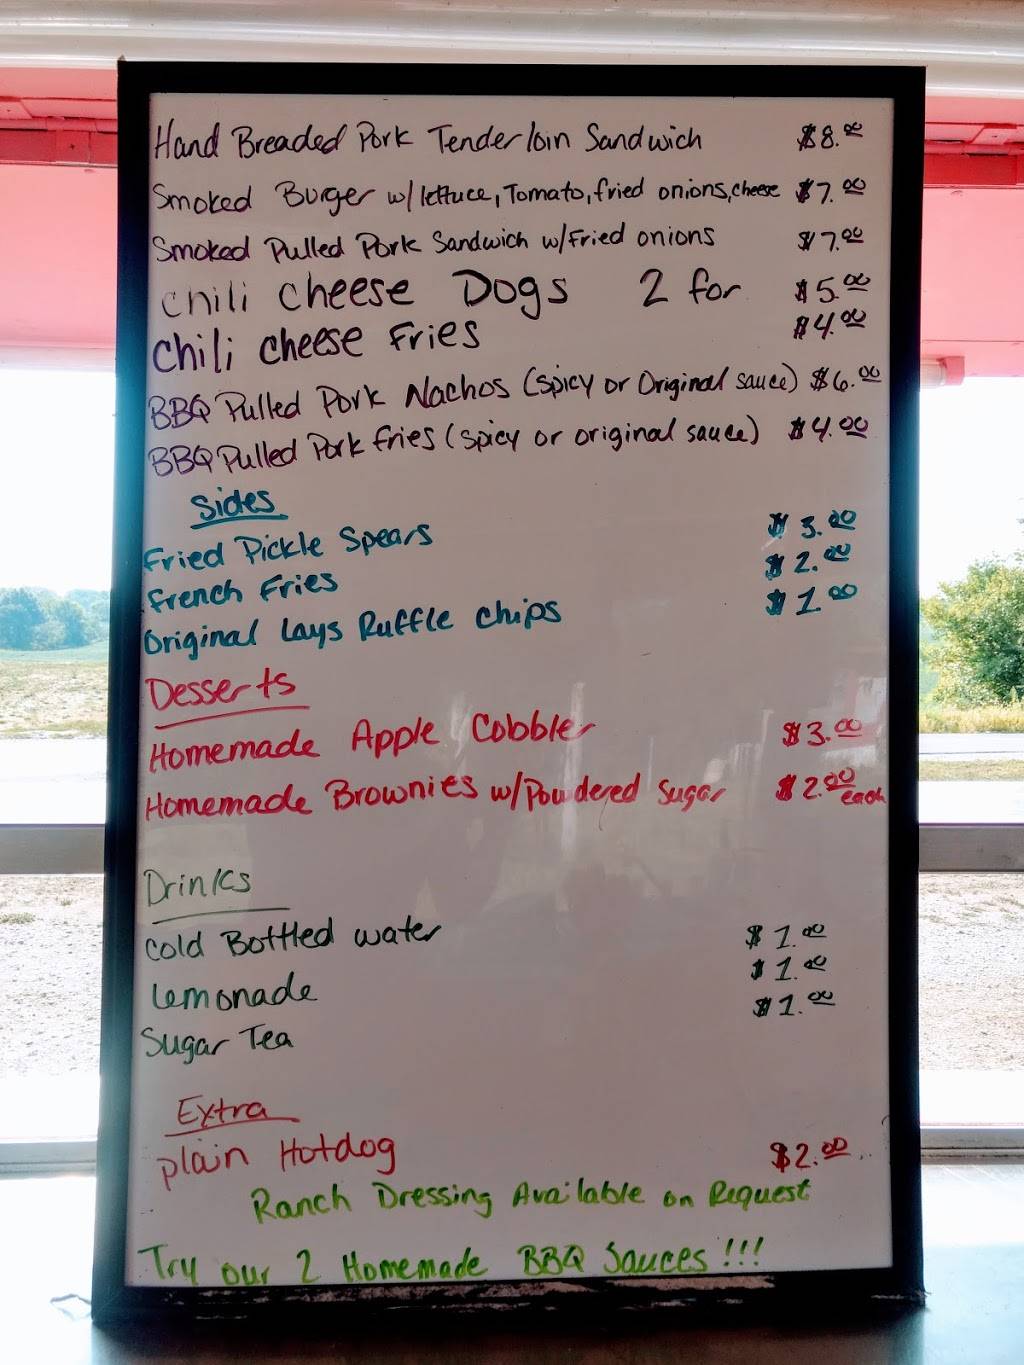 Hand Breaded Pork Tenderloin Sandwich $8.00
Smoked Burger w/lettuce, Tomato, fried onions, cheese $7.00
Smoked Pulled Pork Sandwich w/Fried onions $7.00
Chili Cheese Dogs 2 for $5.00
Chili Cheese Fries $4.00
BBQ Pulled Pork Nachos (spicy or Original sauce) $6.00
BBQ Pulled Pork fries (spicy or original sauce) $4.00
Sides
Fried Pickle Spears $3.00
French Fries $2.00
Original Lays Ruffle Chips $1.00
Desserts
Homemade Apple Cobbler $3.00
Homemade Brownies w/Powdered Sugar $2.00 each
Drinks
Cold Bottled water $1.00
Lemonade $1.00
Sugar Tea $1.00
Extra
plain Hotdog $2.00
Ranch Dressing Available on Request
Try our 2 Homemade BBQ Sauces!!!